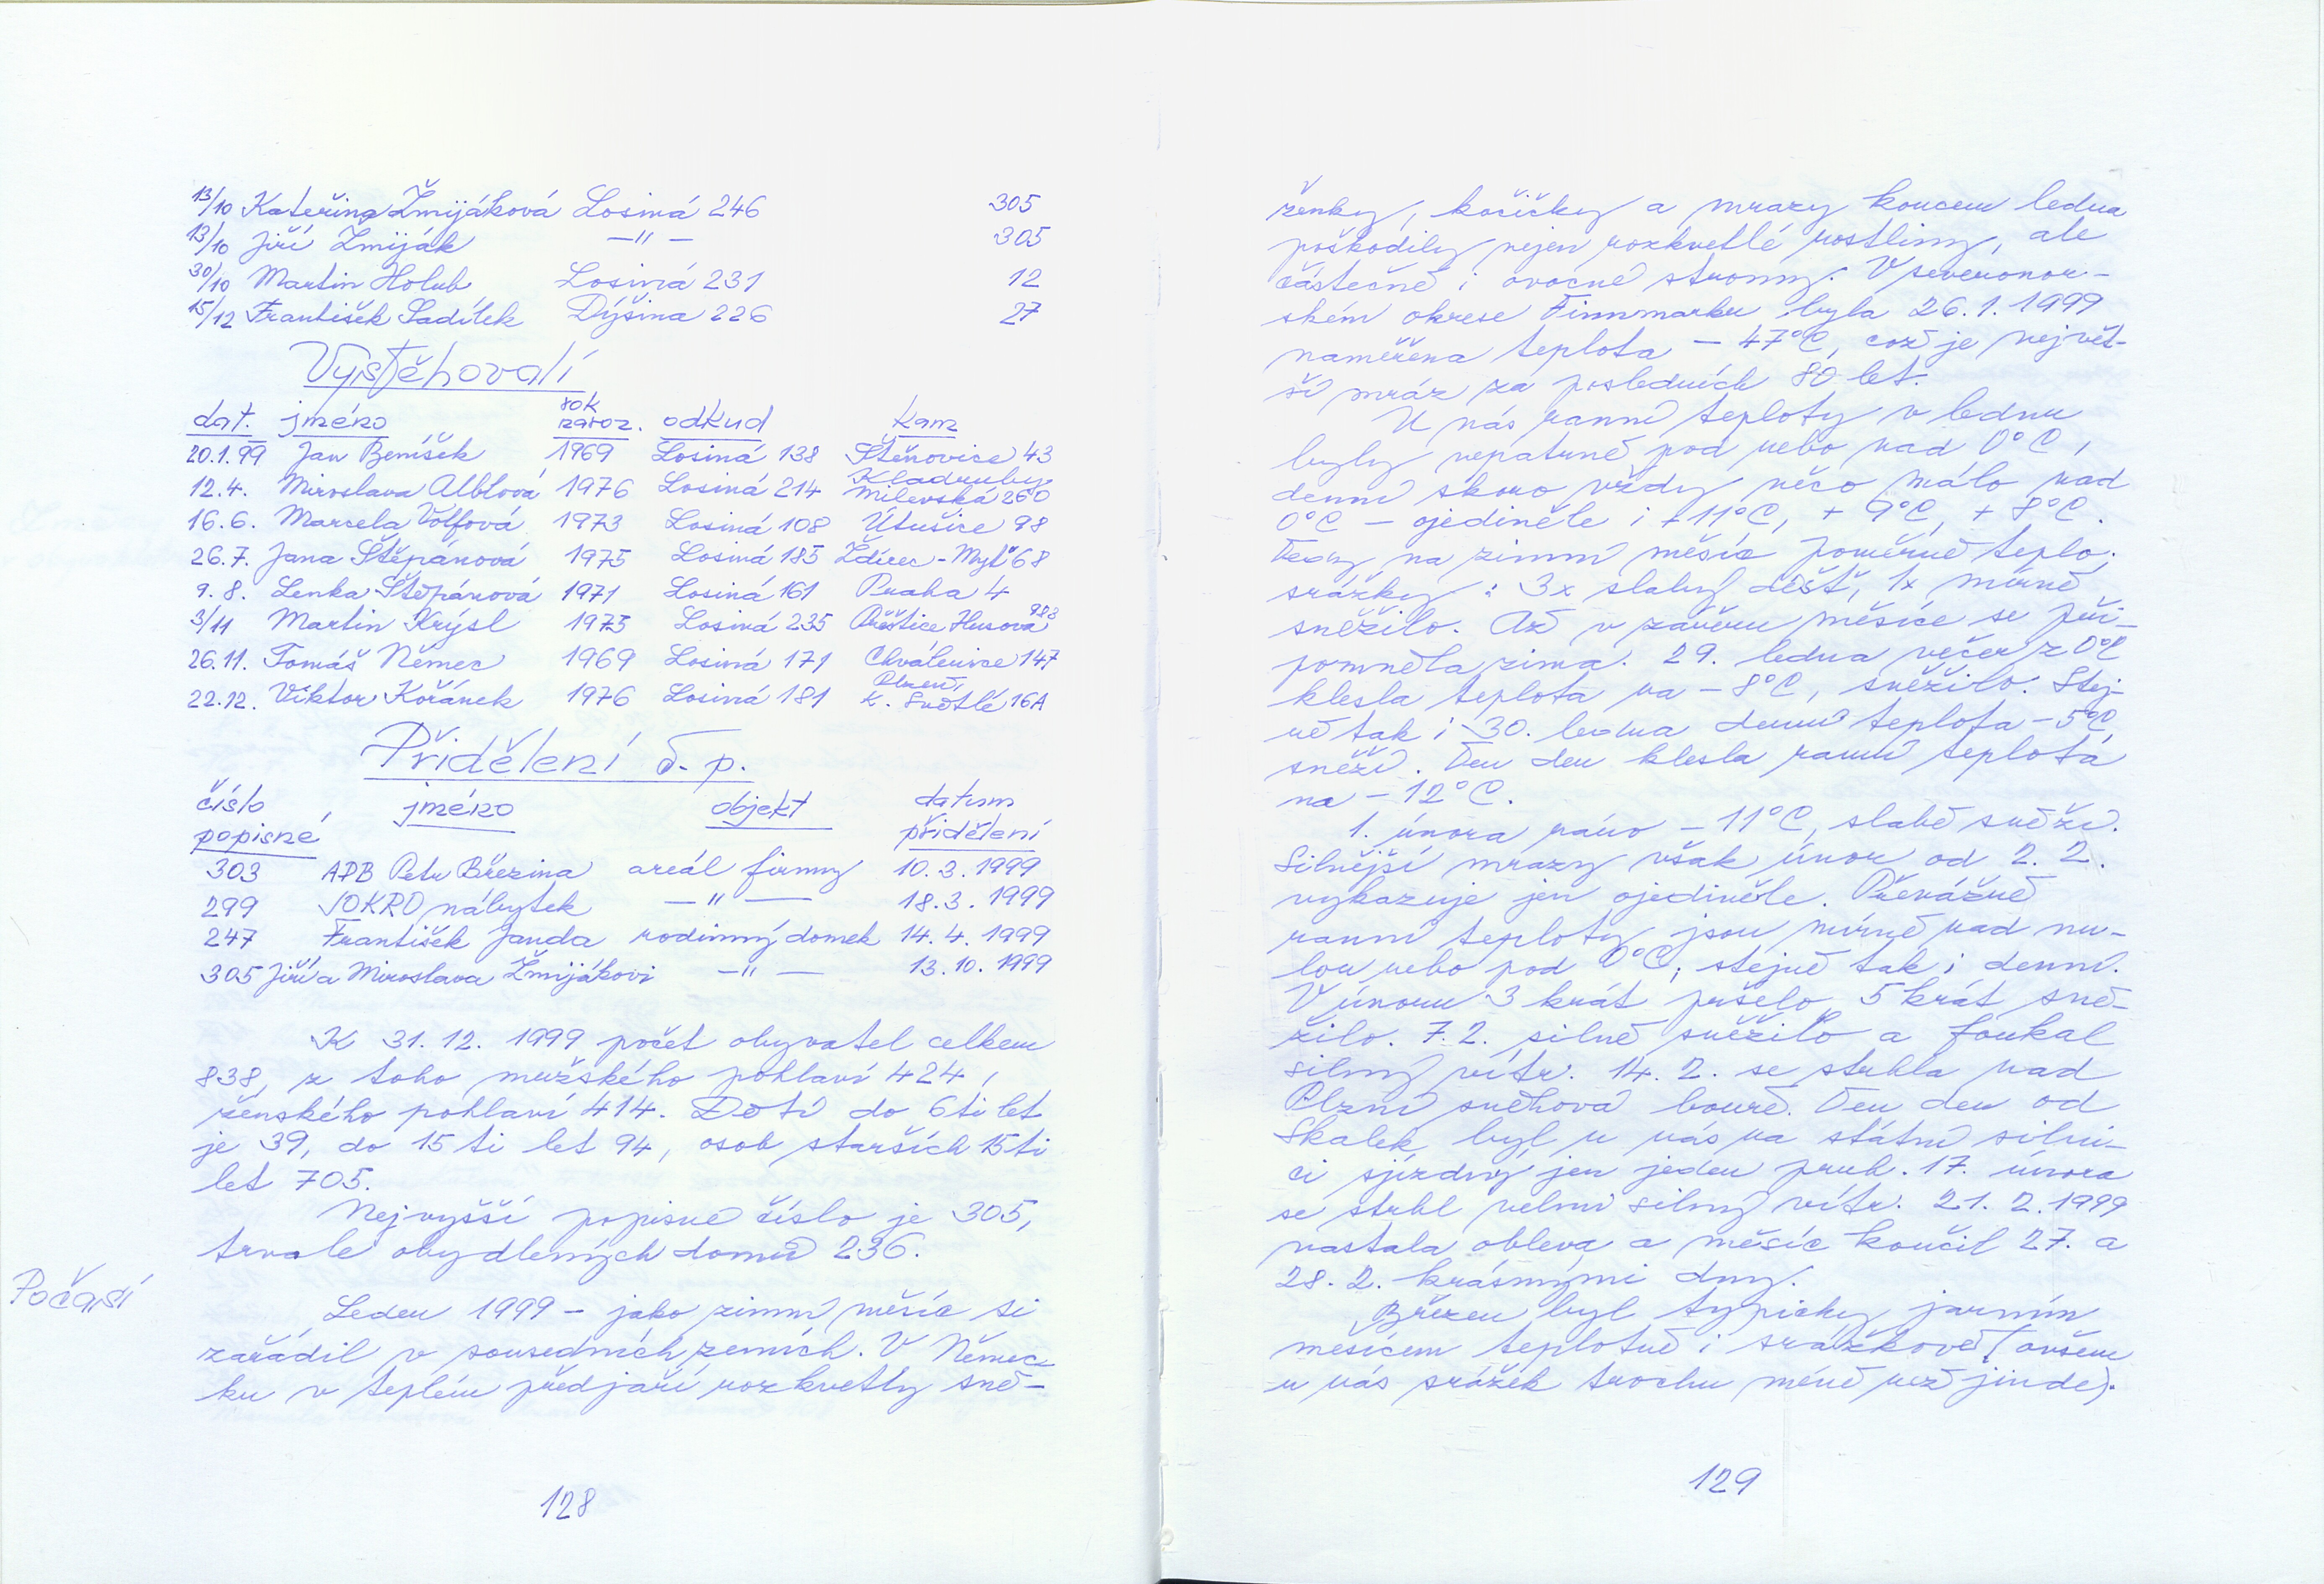 13/10 Kateřina Žmijáková Losiná 246 305
13/10 Jiří Žmiják —"— 305
30/10 Martin Holub Losiná 231 12
15/12 František Sadílek Dýšina 226 27
Vystěhovalí
dat. jméno rok naroz. odkud kam
20.1.99 Jan Beníšek 1969 Losiná 138 Štěnovice 43
12.4. Miroslava Alblová 1976 Losiná 214 Kladruby Milevská 260
16.6. Marcela Volfová 1973 Losiná 108 Útušice 98
26.7. Jana Štěpánová 1975 Losiná 185 Ždírec - Mýť 68
9.8. Lenka Štěpánová 1971 Losiná 161 Praha 4
3/11 Martin Krýsl 1975 Losiná 235 Přeštice Husova 983
26.11. Tomáš Němec 1969 Losiná 171 Chválenice 147
22.12. Viktor Kořánek 1976 Losiná 181 Plzeň, K. Světlé 16A
Přidělení č. p.
číslo popisné jméno objekt datum přidělení
303 APB Petr Březina areál firmy 10.3.1999
299 JOKRO nábytek —"— 18.3.1999
247 František Janda rodinný domek 14.4.1999
305 Jiří a Miroslava Žmijákovi —"— 13.10.1999
K 31.12. 1999 počet obyvatel celkem
838, z toho mužského pohlaví 424,
ženského pohlaví 414. Dětí do 6ti let
je 39, do 15ti let 94, osob starších 15ti
let 705.
Nejvyšší popisné číslo je 305,
trvale obydlených domů 236.
Počasí
Leden 1999 - jako zimní měsíc si
zařádil v sousedních zemích. V Němec-
ku v teplém předjaří rozkvetly sně-
128
ženky, kočičky a mrazy koncem ledna
poškodily nejen rozkvetlé rostliny, ale
částečně i ovocné stromy. V severonor-
ském okrese Finnmarku byla 26.1.1999
naměřena teplota - 47°C, což je největ-
ší mráz za posledních 80 let.
U nás ranní teploty v lednu
byly nepatrně pod nebo nad 0°C,
denní skoro vždy něco málo nad
0°C - ojediněle i +11°C, + 9°C, + 8°C.
Tedy na zimní měsíc poměrně teplo,
srážky: 3x slabý déšť, 1x mírně
sněžilo. Až v závěru měsíce se při-
pomněla zima. 29. ledna večer z 0°C
klesla teplota na -8°C, sněžilo. Stej-
ně tak i 30. ledna denní teplota -5°C,
sněží. Ten den klesla ranní teplota
na -12°C.
1. února ráno -11°C, slabě sněží.
Silnější mrazy však únor od 2.2.
vykazuje jen ojediněle. Převážně
ranní teploty jsou mírně nad nu-
lou nebo pod 0°C, stejně tak i denní.
V únoru 3 krát pršelo, 5 krát sně-
žilo. 7.2. silně sněžilo a foukal
silný vítr. 14.2. se strhla nad
Plzní sněhová bouře. Ten den od
Skalek byl u nás na státní silni-
ci sjízdný jen jeden pruh. 17. února
se strhl velmi silný vítr. 21.2.1999
nastala obleva a měsíc končil 27. a
28.2. krásnými dny.
Březen byl typicky jarním
měsícem teplotně i srážkově (ovšem
u nás srážek trochu méně než jinde).
129